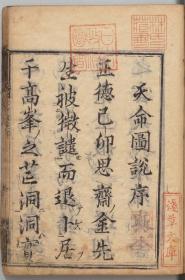 天命圖說序
正德己卯思齋金先
生被微譴而退卜居
于高峯之芒洞洞實
淺草文庫